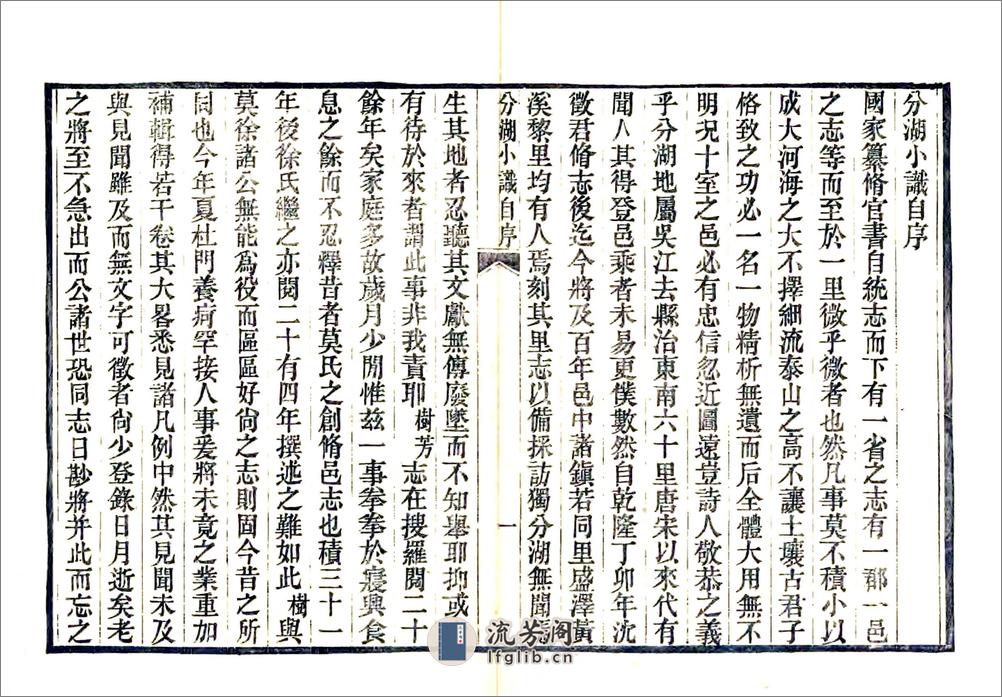 分湖小識自序
國家纂脩官書自統志而下有一省之志有一郡一邑
之志等而至於一里微乎微者也然凡事莫不積小以
成大河海之大不擇細流泰山之高不讓土壤古君子
格致之功必一名一物精析無遺而后全體大用無不
明况十室之邑必有忠信忽近圖遠豈詩人敬恭之義
乎分湖地屬吳江去縣治東南六十里唐宋以來代有
聞人其得登邑乘者未易更僕數然自乾隆丁卯年沈
徵君脩志後迄今將及百年邑中諸鎮若同里盛澤黃
溪黎里均有人焉刻其里志以備採訪獨分湖無聞
分湖小識自序
一
生其地者忍聽其文獻無傳廢墜而不知舉耶抑或
有待於來者謂此事非我責耶樹芳志在搜羅閱二十
餘年矣家庭多故歲月少閒惟茲一事拳拳於寢興食
息之餘而不忍釋昔者莫氏之創脩邑志也積三十一
年後徐氏繼之亦閱二十有四年撰述之難如此樹與
莫徐諸公無能爲役而區區好尙之志則固今昔之所
同也今年夏杜門養疴罕接人事爰將未竟之業重加
補輯得若干卷其大畧悉見諸凡例中然其見聞未及
與見聞雖及而無文字可徵者尙少登錄日月逝矣老
之將至不急出而公諸世恐同志日尠將并此而忘之
流芳閣
lfglib.cn